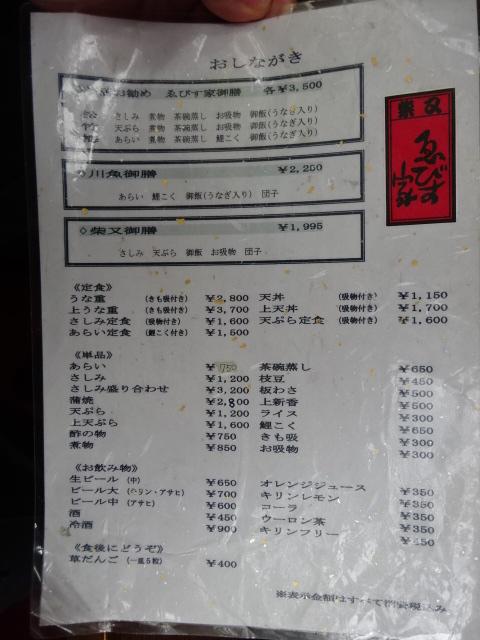 おしながき
お勧め ゑびす家御膳 各¥3,500
松 さしみ 煮物 茶碗蒸し お吸物 御飯(うなぎ入り)
竹 天ぷら 煮物 茶碗蒸し お吸物 御飯(うなぎ入り)
梅 あらい 煮物 茶碗蒸し 鯉こく 御飯(うなぎ入り)
◇川魚御膳 ¥2,250
あらい 鯉こく 御飯(うなぎ入り) 団子
◇柴又御膳 ¥1,995
さしみ 天ぷら 御飯 お吸物 団子
柴又
ゑびす家
《定食》
うな重 (きも吸付き) ¥2,800
上うな重 (きも吸付き) ¥3,700
さしみ定食 (吸物付き) ¥1,600
あらい定食 (鯉こく付き) ¥1,500
天丼 (吸物付き) ¥1,150
上天丼 (吸物付き) ¥1,700
天ぷら定食 (吸物付き) ¥1,600
《単品》
あらい ¥750
さしみ ¥1,200
さしみ盛り合わせ ¥3,200
蒲焼 ¥2,800
天ぷら ¥1,200
上天ぷら ¥1,600
酢の物 ¥750
煮物 ¥850
茶碗蒸し ¥650
枝豆 ¥450
板わさ ¥500
上新香 ¥500
ライス ¥300
鯉こく ¥650
きも吸 ¥300
お吸物 ¥300
《お飲み物》
生ビール (中) ¥650
ビール大 (キリン・アサヒ) ¥700
ビール中 (アサヒ) ¥600
酒 ¥450
冷酒 ¥900
オレンジジュース ¥350
キリンレモン ¥350
コーラ ¥350
ウーロン茶 ¥350
キリンフリー ¥450
《食後にどうぞ》
草だんご (一皿5粒) ¥400
※表示金額はすべて消費税込み